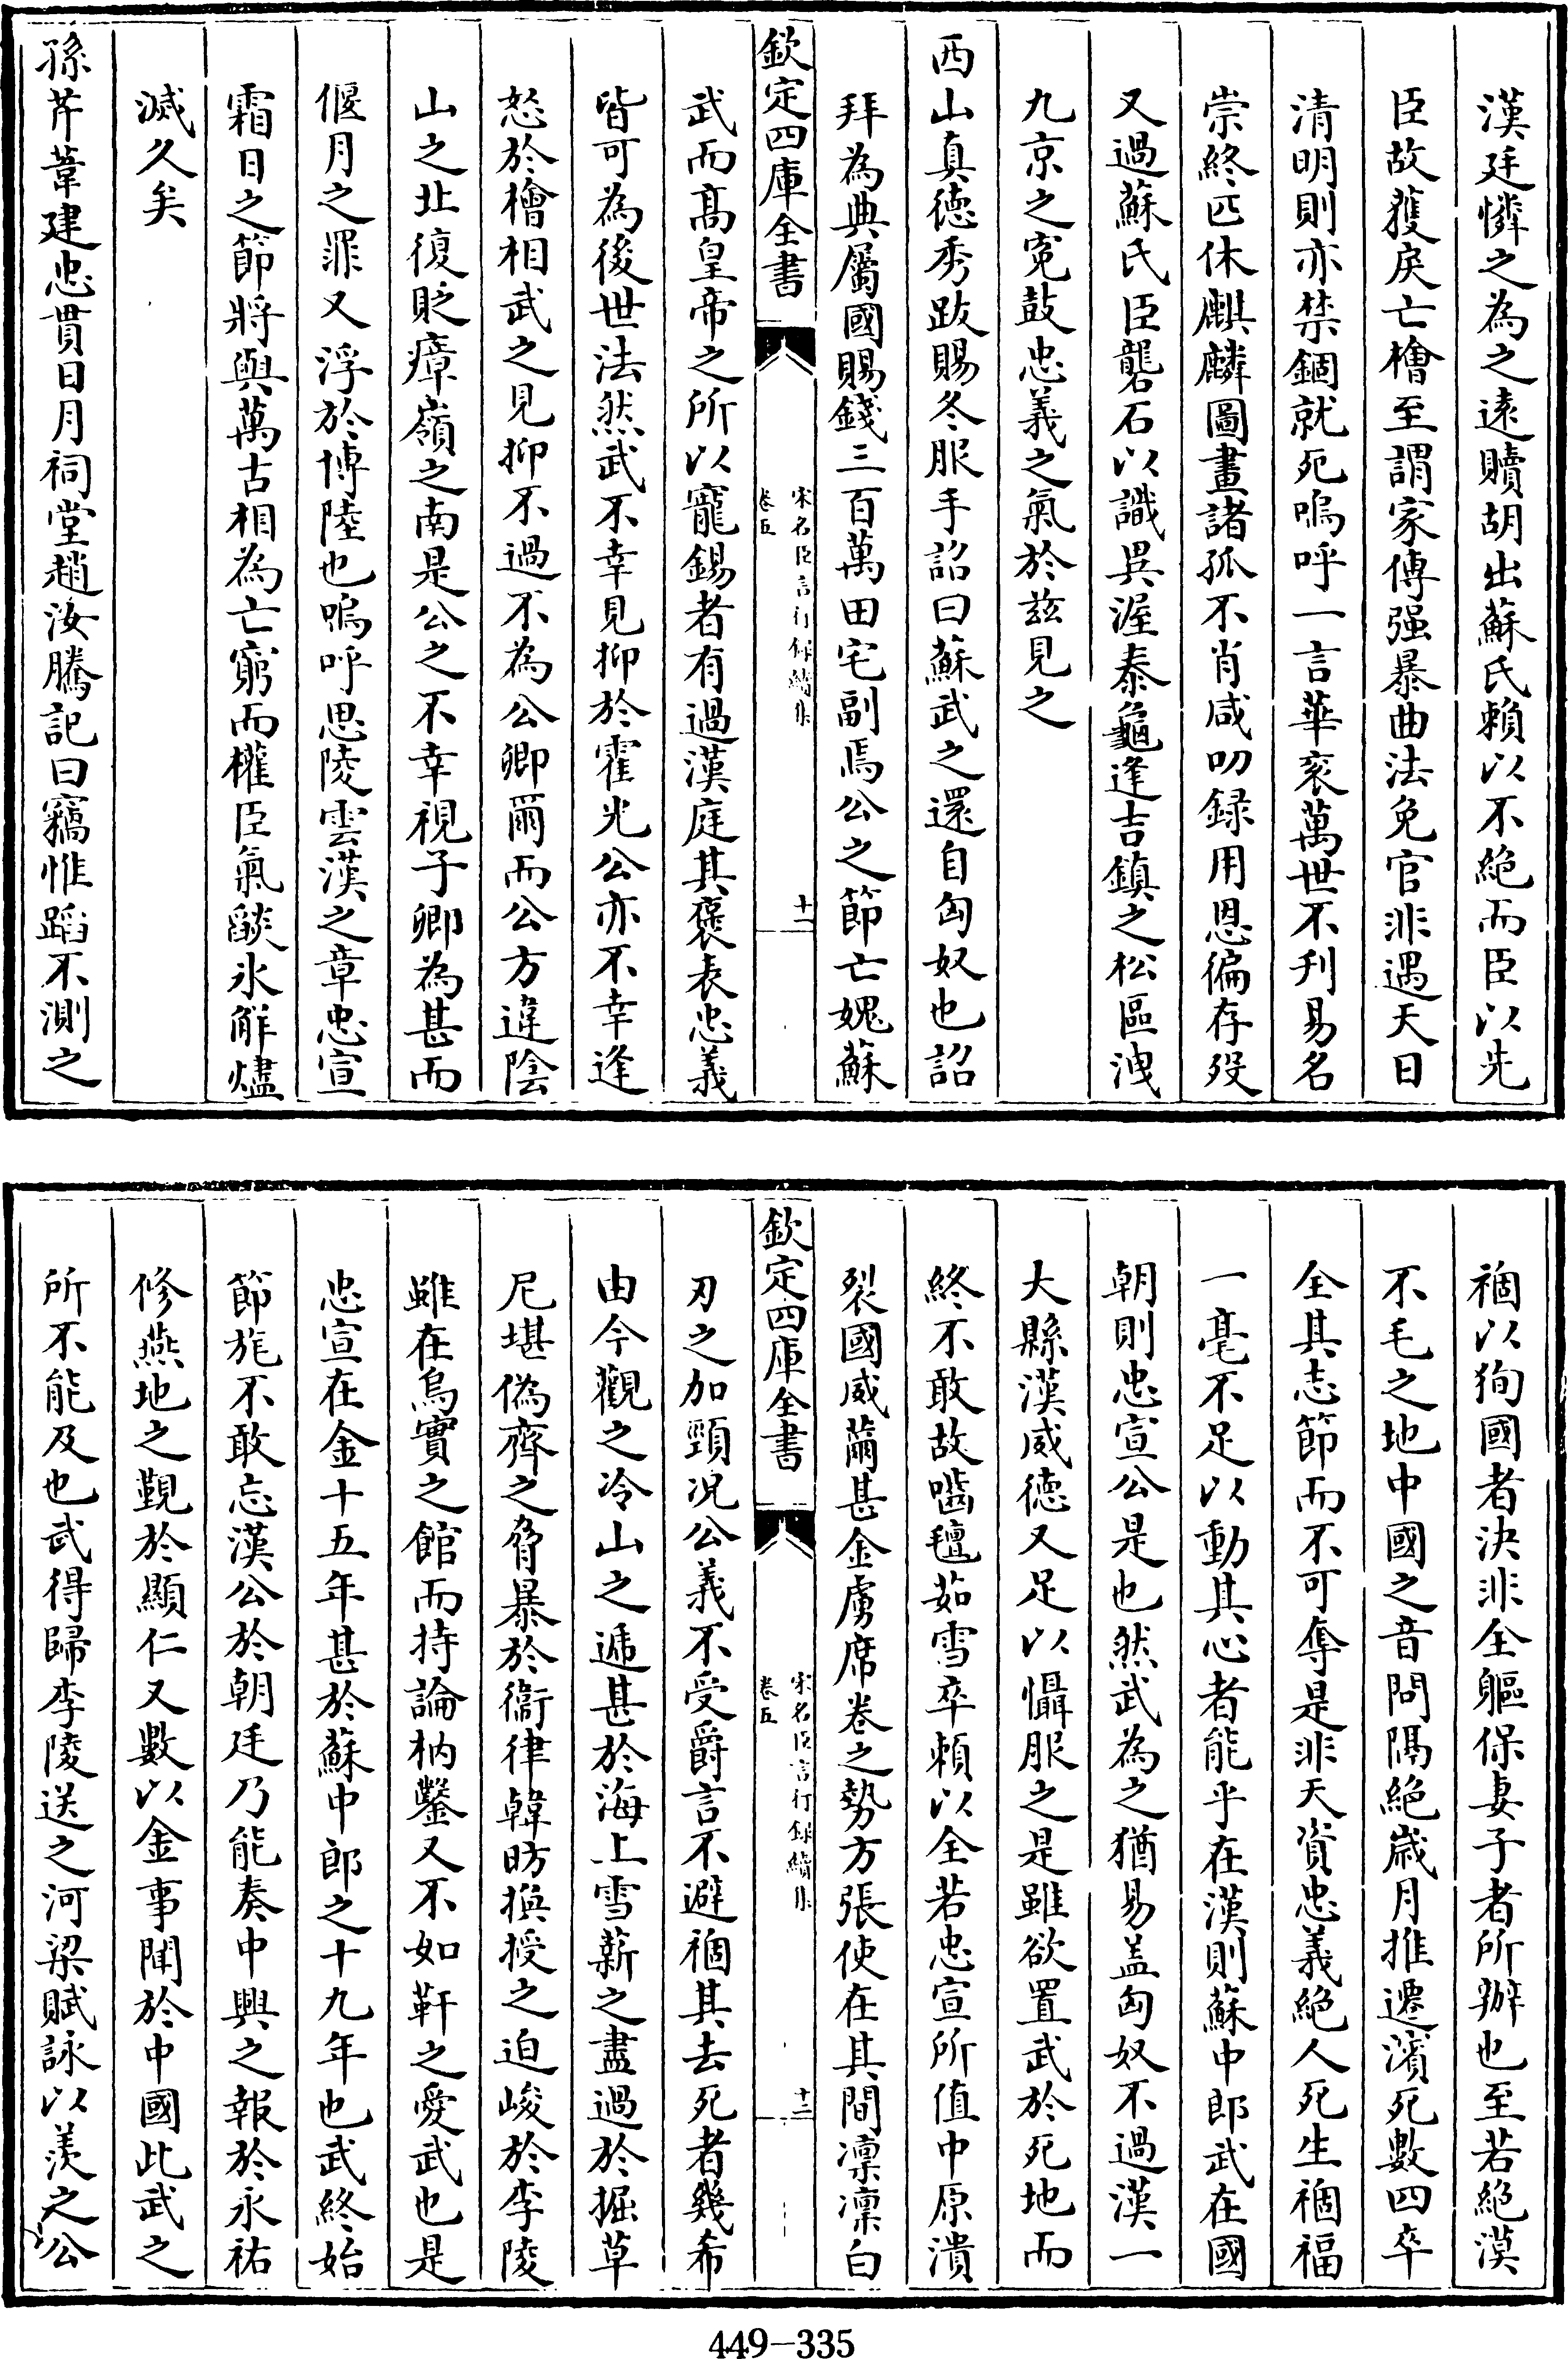 漢廷憐之為之遠贖胡出蘇氏賴以不絶而臣以先
臣故獲戾亡檜至謂家傅强暴曲法免官非遇天日
清明則亦禁錮就死嗚呼一言華衮萬世不刋易名
崇終匹休麒麟圖畫諸孤不肖咸叨録用恩徧存歿
又過蘇氏臣礱石以識異渥㤗龜逢吉鎮之松區洩
九京之寃鼓忠義之氣於兹見之
西山真德秀跋賜冬服手詔曰蘇武之還自匈奴也詔
拜為典屬國賜錢三百萬田宅副焉公之節亡媿蘇
欽定四庫全書
宋名臣言行録續集
卷五
十一
武而髙皇帝之所以寵錫者有過漢庭其褒表忠義
皆可為後世法然武不幸見抑於霍光公亦不幸逢
怒於檜相武之見抑不過不為公卿爾而公方違陰
山之北復貶瘴嶺之南是公之不幸視子卿為甚而
偃月之罪又浮於博陸也嗚呼思陵雲漢之章忠宣
霜日之節將與萬古相為亡窮而權臣氣燄氷解燼
滅久矣
孫芹葦建忠貫日月祠堂趙汝騰記曰竊惟蹈不測之
禍以狥國者決非全軀保妻子者所辦也至若絶漠
不毛之地中國之音問隔絶歲月推遷濱死數四卒
全其志節而不可奪是非天資忠義絶人死生禍福
一毫不足以動其心者能乎在漢則蘇中郎武在國
朝則忠宣公是也然武為之猶易盖匈奴不過漢一
大縣漢威德又足以懾服之是雖欲置武於死地而
終不敢故嚙氊茹雪卒頼以全若忠宣所值中原潰
裂國威薾甚金虜席卷之勢方張使在其間凛凛白
欽定四庫全書
宋名臣言行録續集
卷五
十二
刃之加頸況公義不受爵言不避禍其去死者幾希
由今觀之冷山之遞甚於海上雪薪之盡過於掘草
尼堪偽齊之脅暴於衞律韓昉換授之迫峻於李陵
雖在烏實之館而持論枘鑿又不如靬之愛武也是
忠宣在金十五年甚於蘇中郎之十九年也武終始
節旄不敢忘漢公於朝廷乃能奏中興之報於永祐
修燕地之覲於顯仁又數以金事聞於中國此武之
所不能及也武得歸李陵送之河梁賦詠以羡之公
449-335